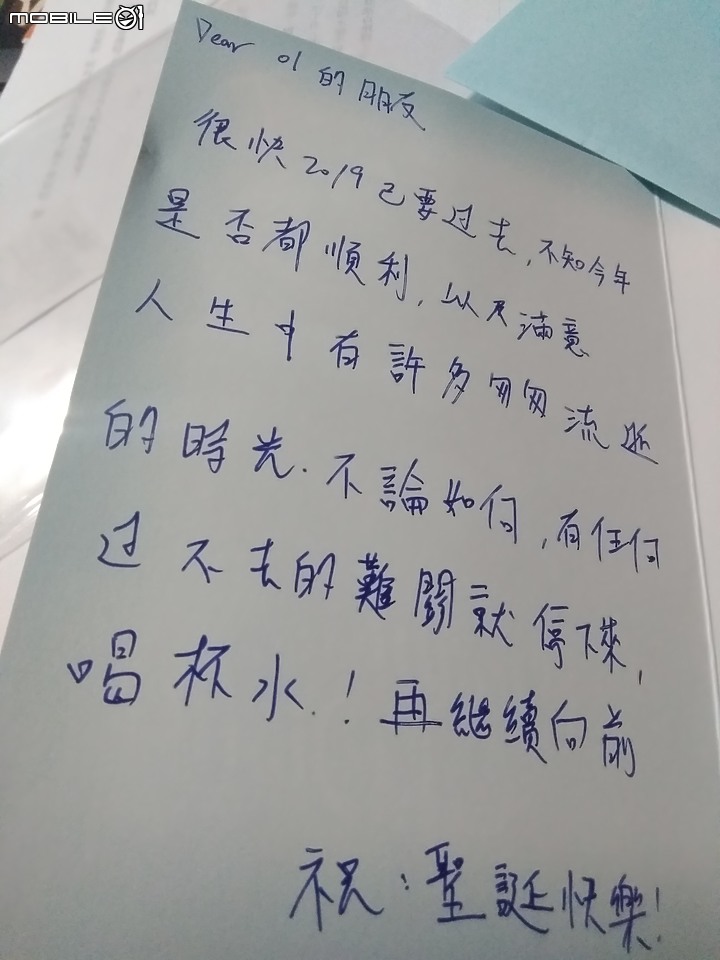 MOBILE01
Dear 01 的朋友
很快 2019 已要过去,不知今年
是否都順利,以及滿意
人生中有許多匆匆流逝
的時光.不論如何,有任何
过不去的難關就停下來,
喝杯水.!再繼續向前
祝:聖誕快樂!